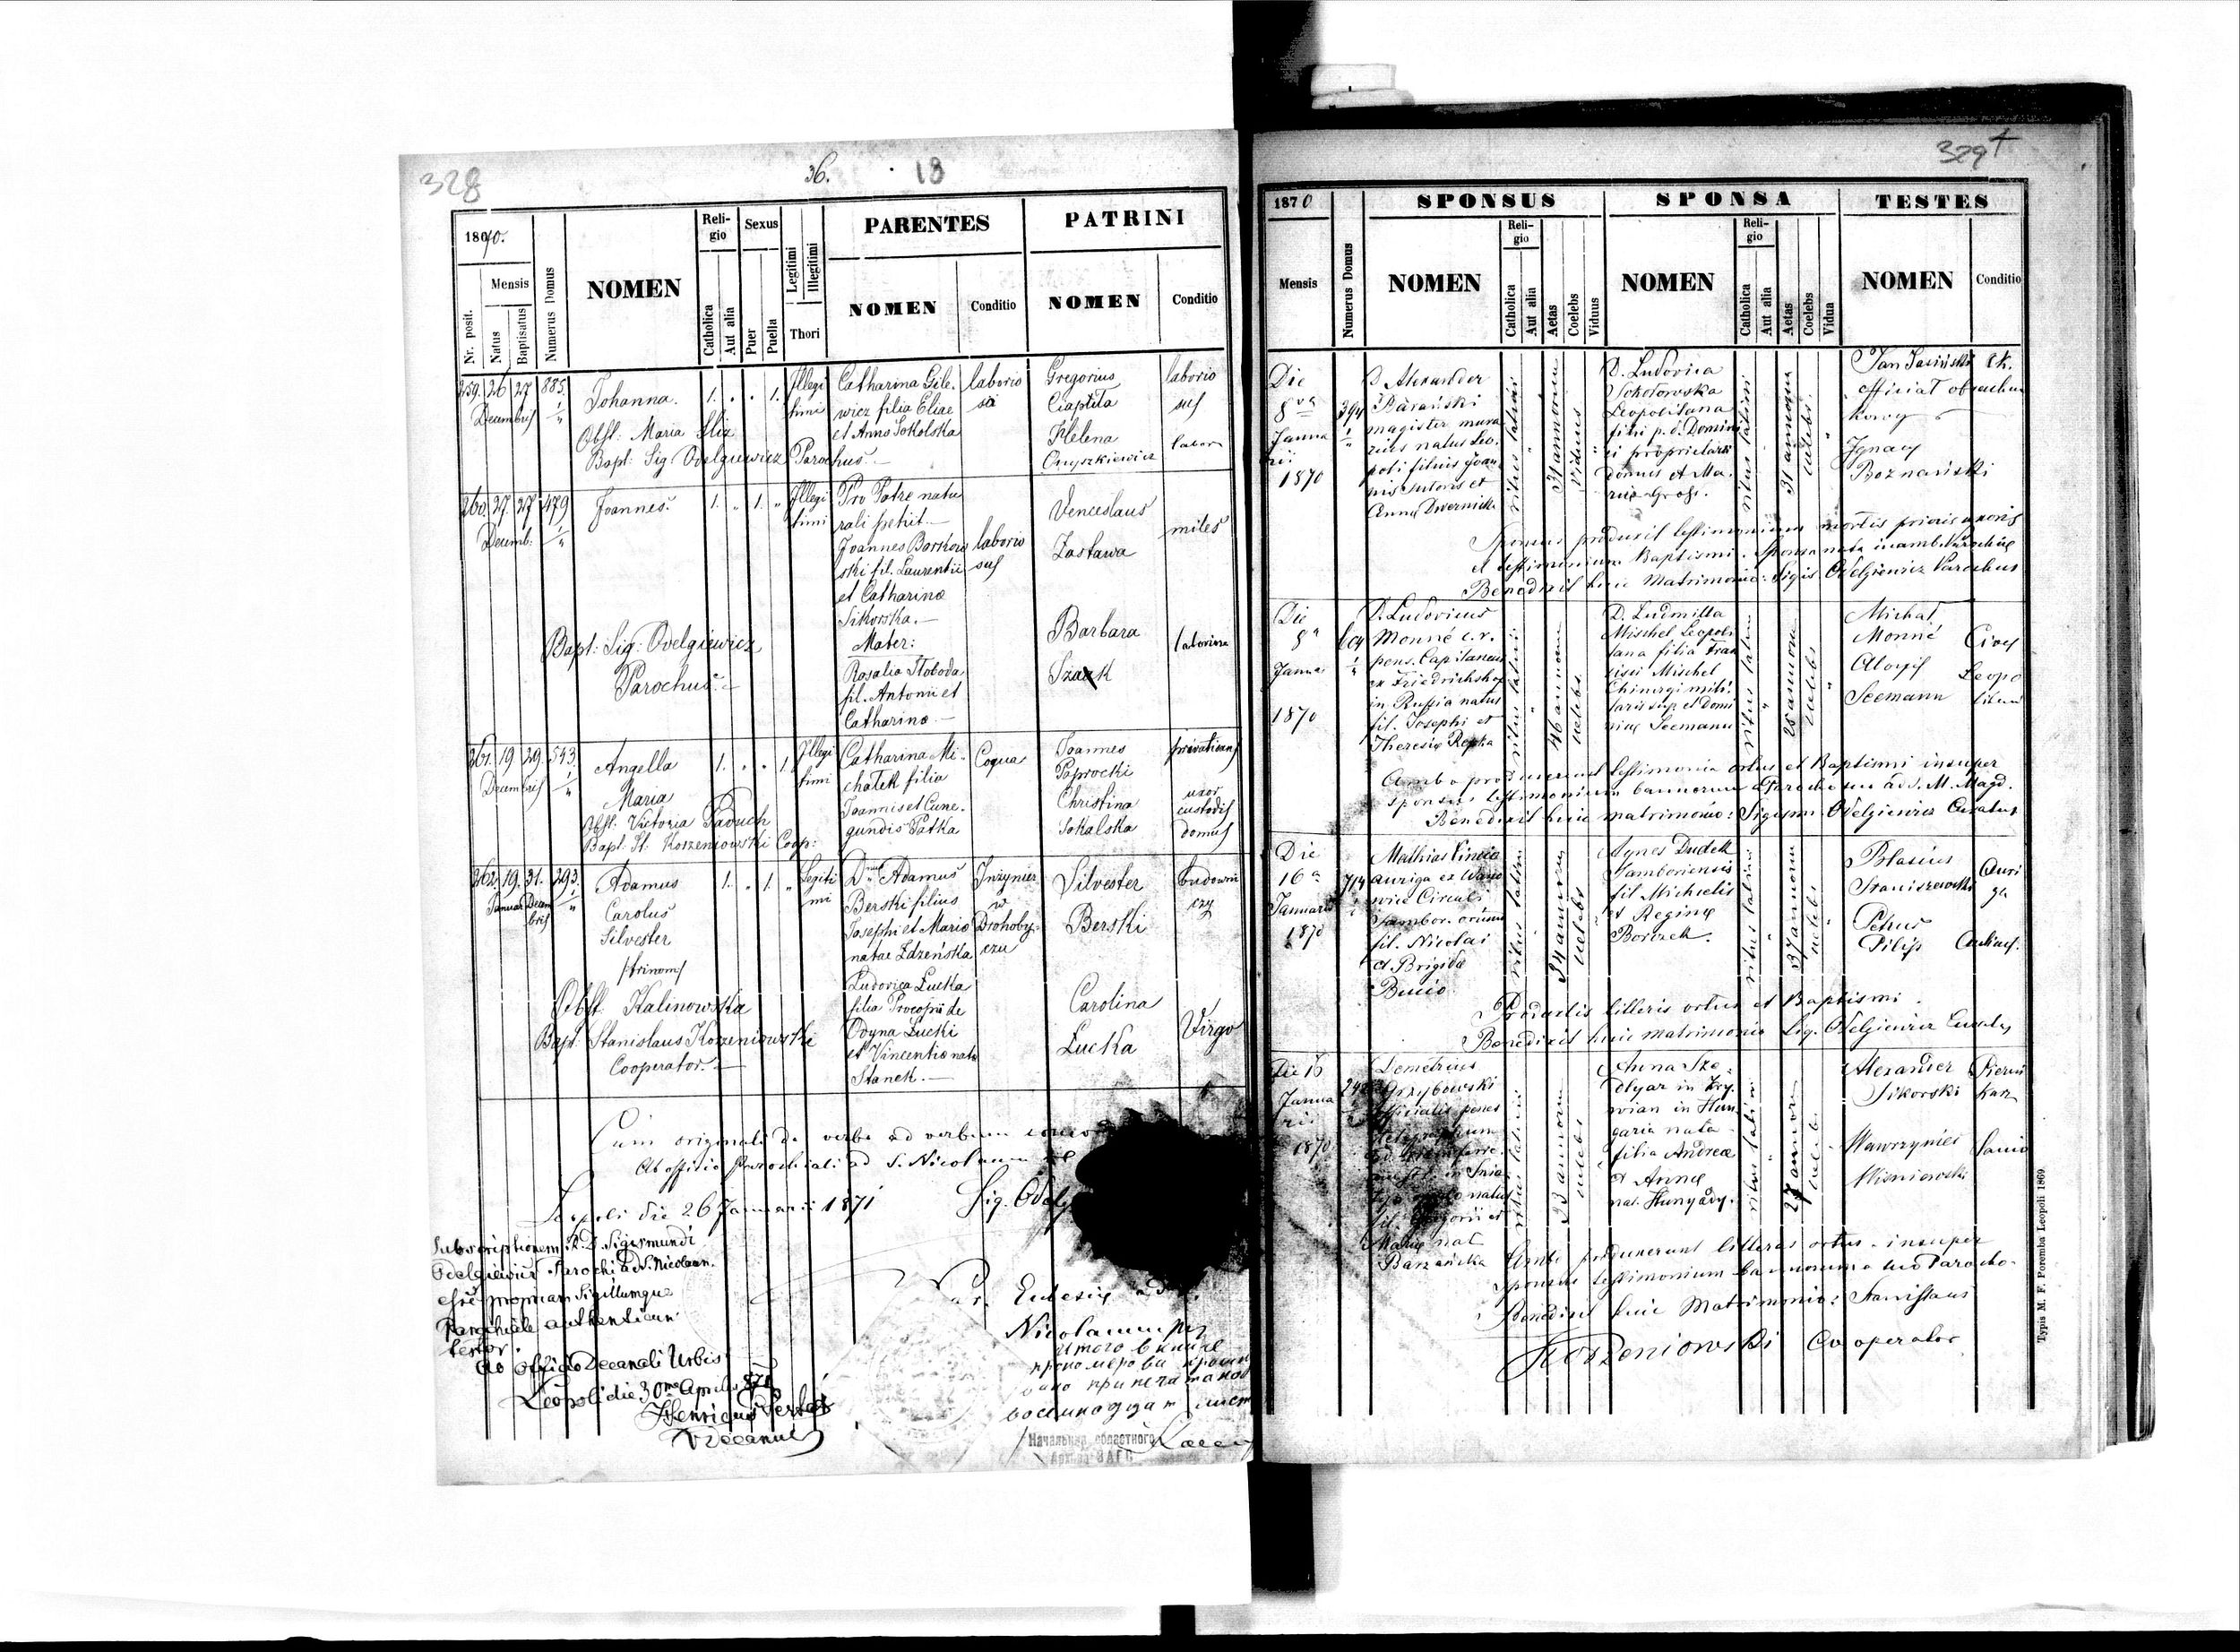 328
36.
18
1870.
Nr. posit.
Mensis
Natus
Baptisatus
Numerus Domus
NOMEN
Religio
Catholica
Aut alia
Sexus
Puer
Puella
Legitimi
Illegitimi
Thori
PARENTES
NOMEN
Conditio
PATRINI
NOMEN
Conditio
259. 26 27 885.
Decembris
Johanna.
1. . . 1.
Illegi
timi
Catharina Gile-
wicz filia Eliae
et Anna Sokolska
laborio
sa
Gregorius
Ciaptila
Helena
Onyszkiewicz
laborio
sus
labor
Obst: Maria Sliz
Bapt: Sig: Odelgiewicz Parochus.
260. 27. 27 479
Decemb:
Joannes.
1. " 1. "
Illegi
timi
Pro Patre natu
rali petiit.
Joannes Barkow
ski fil. Laurentii
et Catharina
Sikorska.
Mater:
Rosalia Sloboda
fil. Antonii et
Catharina
laborio
sus
Venceslaus
Zastawa
miles
Barbara
laboriosa
Bapt: Sig: Odelgiewicz
Parochus.
261. 19 29. 543.
Decembris
Angella
Maria
1. . . 1.
Illegi
timi
Catharina Mi-
chalek filia
Joannis et Cune-
gundis Patka
Coqua
Joannes
Paprocki
Christina
Sokalska
privatians
uxor
custodis
domus
Obst. Victoria Paduch
Bapt. St. Korzeniowski Coop:
262. 19. 31. 293.
Januar Decem
bris
Adamus
Carolus
Silvester
/trinom/
1. " 1. "
Legiti
mi
Dnus Adamus
Berski filius
Josephi et Maria
natae Zdzeńska
Ludovica Łucka
filia Procopii de
Odyna Łucki
et Vincentia nata
Stanek.
Inżynier
w
Drohoby-
czu
Silvester
Berski
budowni
czy
Carolina
Łucka
Virgo
Obst. Kalinowska
Bapt: Stanislaus Korzeniowski
Cooperator.
Cum originali de verbo ad verbum
Ab officio Parochiali ad S. Nicolaum
Leopoli die 26 Januarii 1871
Sig. Odelg
Subscriptionem R. D. Sigismundi
Odelgiewicz Parochi ad S. Nicolaum
esse propriam Sigillumque
Parochiale authenticum
testor.
Ab Officio Decanali Urbis
Leopoli die 30ma Aprilis 871
Henricus
Decanus
Nicolaum
Итого в книге
пронумеровано
восемнадцат лист
Начальник областного
Архива ЗАГС
329
1870
Mensis
Numerus Domus
SPONSUS
NOMEN
Religio
Catholica
Aut alia
Aetas
Coelebs
Viduus
SPONSA
NOMEN
Religio
Catholica
Aut alia
Aetas
Coelebs
Vidua
TESTES
NOMEN
Conditio
Die
8va
Janua
rii
1870
394
D. Alexander
Barański
magister mura
rius natus Leo-
poli filius Joan
nis sutoris et
Anna Dwernicka
ritus latini
31 annorum
Viduus
D. Ludovica
Sokołowska
Leopolitana
filia p. d. Domini
ci proprietarii
domus et Ma-
ria Gross.
ritus latini
31 annorum
caelebs
Jan Jasiński
officiał obrachun
kowy
Ignacy
Boznański
Sponsus produxit testimonium mortis prioris uxoris
et testimonium Baptismi. Sponsa nata in
Benedixit huic Matrimonio: Sigis. Odelgiewicz Parochus
Die
8a
Janua
1870
D. Ludovicus
Monné c. r.
pens. Capitaneus
ex Friedrichshof
in Russia natus
fil. Josephi et
Theresia Repka
ritus latini
46 annorum
caelebs
D. Ludmilla
Mischel Leopoli
tana filia Fran
cisci Mischel
Chirurgi mili
taris sup. et Domi
nica Seemann
ritus latini
28 annorum
caelebs
Michał
Monné
Aloys
Seemann
Cives
Leopo
litani
Ambo produxerunt testimonia ortus et Baptismi insuper
sponsus testimonium bannorum a Parocho ad S. M. Magd.
Benedixit huic matrimonio: Sigism. Odelgiewicz Curatus
Die
16a
Januarii
1870
714
Mathias Pincio
auriga ex
Circuli
Sambor. oriun
fil. Nicolai
et Brigida
Bucio
ritus latini
34 annorum
caelebs
Agnes Dudek
Samboriensis
fil. Michaelis
et Regina
Borczek.
ritus latini
37 annorum
caelebs
Blasius
Staniszewski
Petrus
Pilip
Auri
ga
Productis litteris ortus et Baptismi.
Benedixit huic matrimonio Sig. Odelgiewicz Curatus
Die 16
Janua
rii
1870
Demetrius
Grzybowski
officialis penes
telegraphum
in Snia
natus
fil. Gregorii et
Maria nat.
Barzańska
ritus latini
23 annorum
caelebs
Anna Sze-
in Hun
garia nata
filia Andrea
et Anna
nat. Hunyady.
ritus latini
27 annorum
caelebs
Alexander
Sikorski
Wawrzyniec
Wisniowski
Pierni
karz
Lanio
Ambo produxerunt litteras ortus insuper
sponsus testimonium bannorum a suo Parocho.
Benedixit huic Matrimonio: Stanislaus
Korzeniowski Cooperator
Typis M. F. Poremba Leopoli 1869.